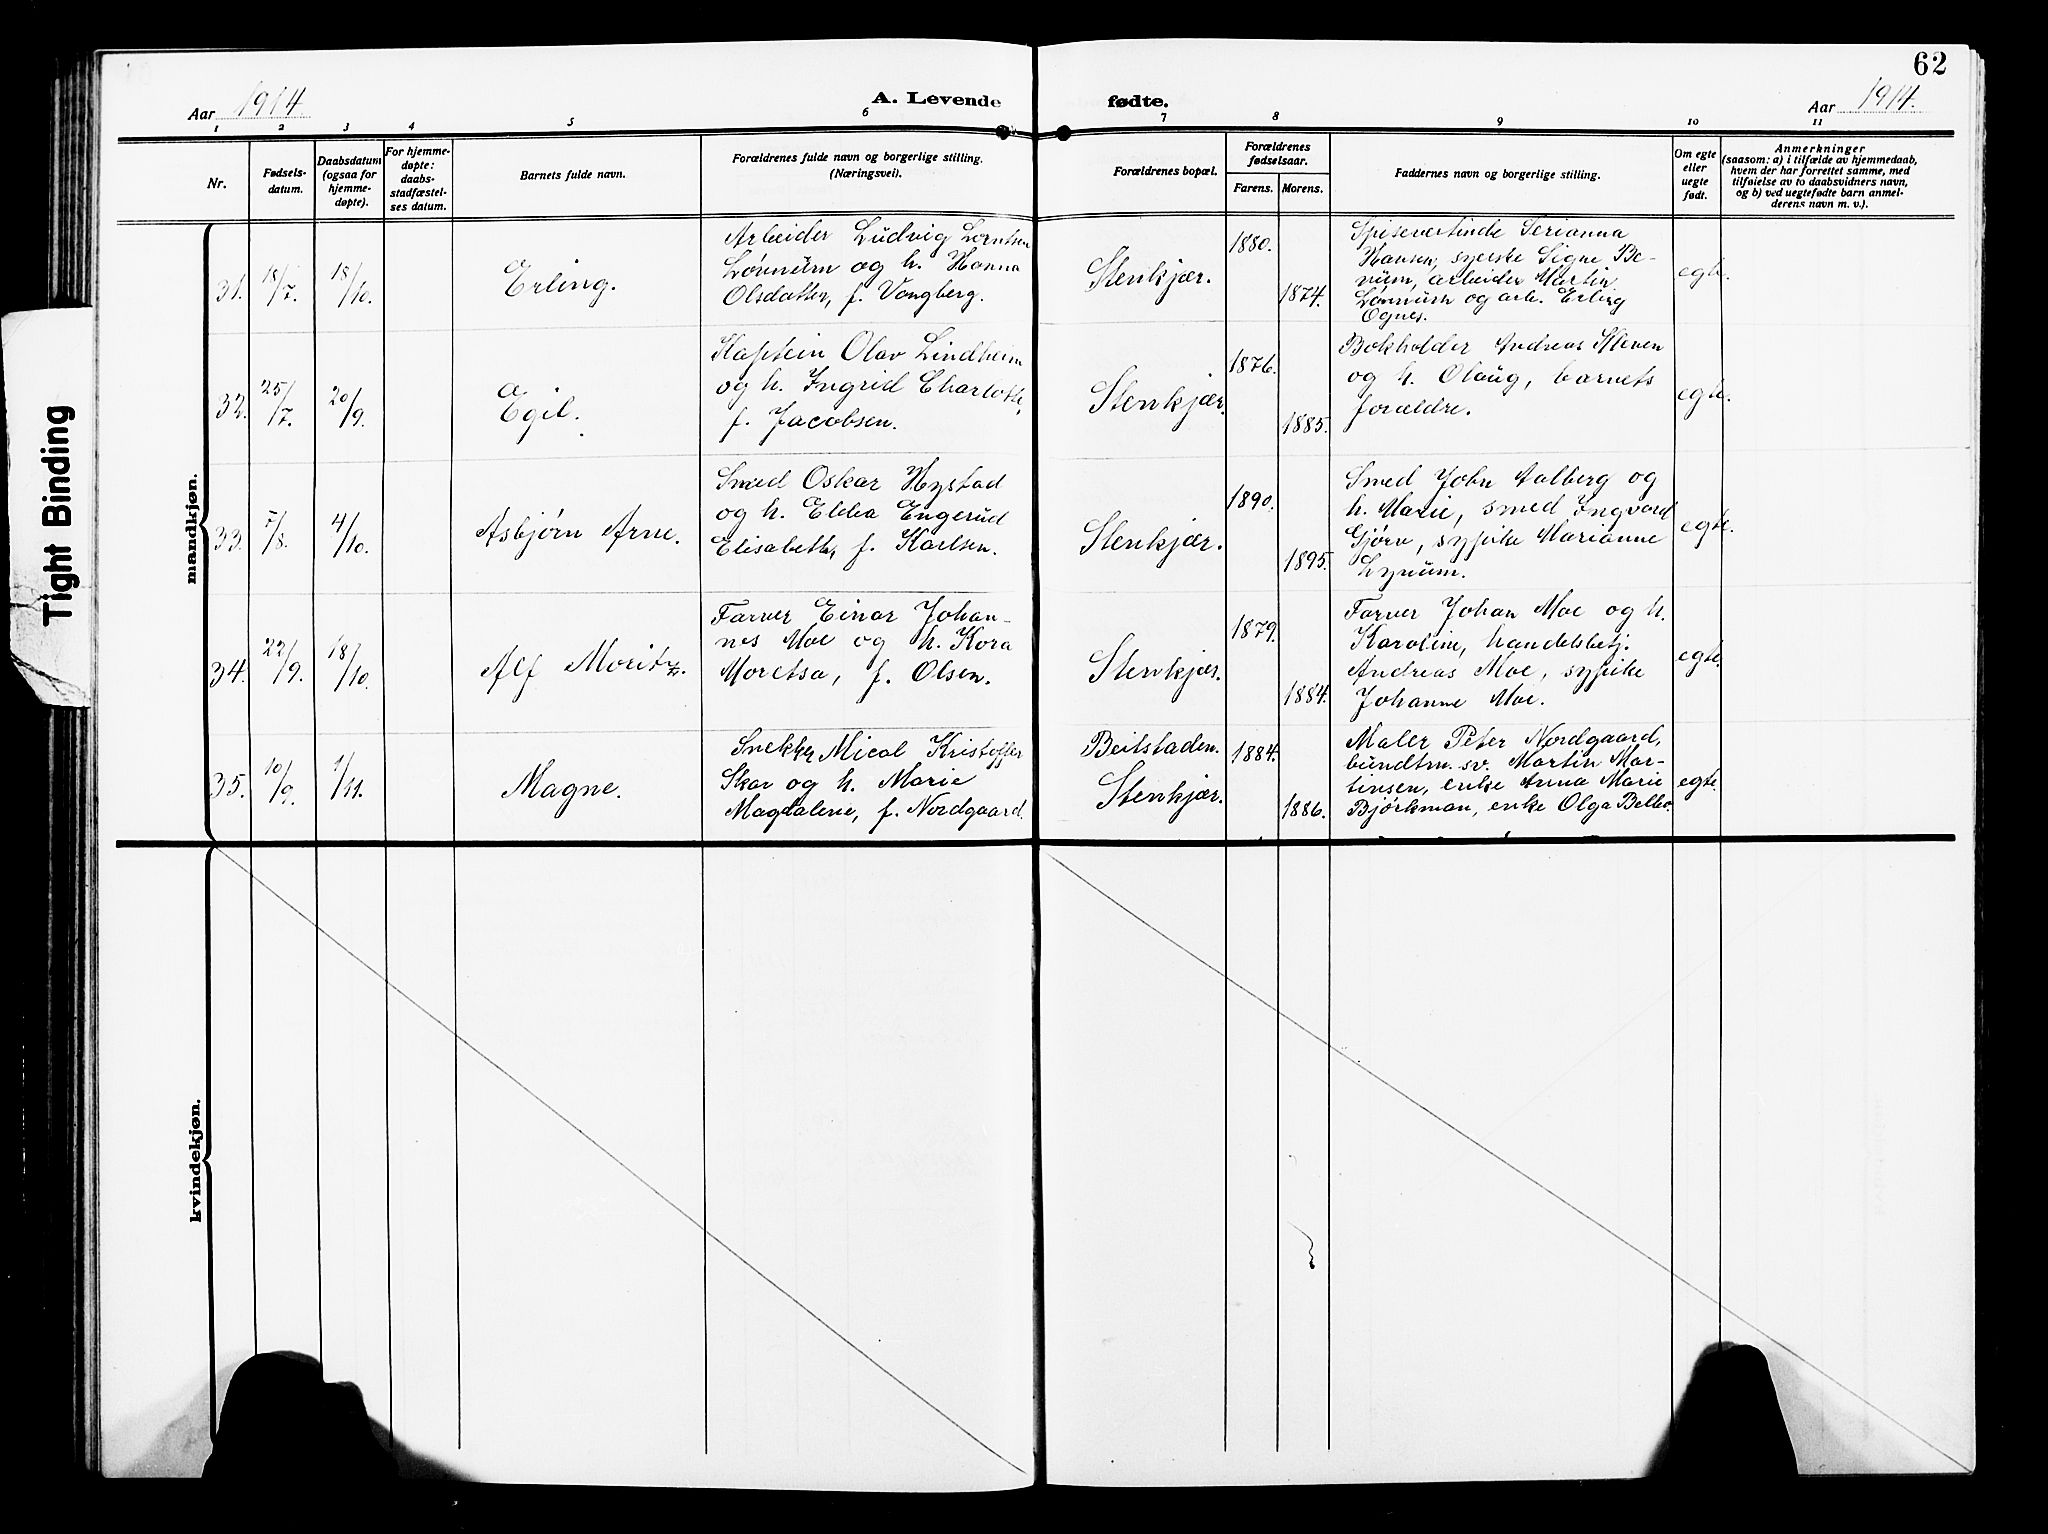 62
Aar 1914
A. Levende
fødte.
Aar 1914.
1 2 3 4 5 6 7 8 9 10 11
Nr.
Fødsels-
datum.
Daabsdatum
(ogsaa for
hjemme-
døpte).
For hjemme-
døpte:
daabs-
stadfæstel-
ses datum.
Barnets fulde navn.
Forældrenes fulde navn og borgerlige stilling.
(Næringsvei).
Forældrenes bopæl.
Forældrenes
fødselsaar.
Farens. Morens.
Faddernes navn og borgerlige stilling.
Om egte
eller
uegte
født.
Anmerkninger
(saasom: a) i tilfælde av hjemmedaab,
hvem der har forrettet samme, med
tilføielse av to daabsvidners navn,
og b) ved uegtefødte barn anmel-
derens navn m. v.).
mandkjøn.
31. 18/7. 18/10.
Erling.
Arbeider Ludvig Lorntsen
Lønnum og h. Hanna
Olsdatter, f. Vongberg.
Stenkjær.
1880.
1874.
Spisevertinde Serianna
Hansen, syerske Signe Be-
num, arbeider Martin
Lønnum og arb. Erling
Ognes.
egte.
32. 25/7. 20/9.
Egil.
Kaptein Olav Lindheim
og h. Ingrid Charlotte,
f. Jacobsen.
Stenkjær.
1876.
1885.
Bokholder Andreas Kleven
og h. Olaug, barnets
forældre.
egte.
33. 7/8. 4/10.
Asbjørn Arne.
Smed Oskar Hystad
og h. Ebba Engerud
Elisabeth, f. Karlsen.
Stenkjær.
1890.
1895.
Smed John Aalberg og
h. Marie, smed Ingvard
Gjørv, sypike Marianne
Lynum.
egte.
34. 22/9. 18/10.
Alf Moritz.
Farver Einar Johan-
nes Moe og h. Kora
Moretsa, f. Olsen.
Stenkjær.
1879.
1884.
Farver Johan Moe og h.
Karoline, handelsbetj.
Andreas Moe, sypike
Johanne Moe.
egte.
35. 10/9. 1/11.
Magne.
Snekker Micol Kristoffer
Skar og h. Marie
Magdalene, f. Nordgaard.
Beitstaden.
Stenkjær.
1884.
1886.
Maler Peter Nordgaard,
bundtm. sv. Martin Mar-
tinsen, enke Anna Marie
Bjørkman, enke Olga Belbo.
egte.
kvindekjøn.
Tight Binding